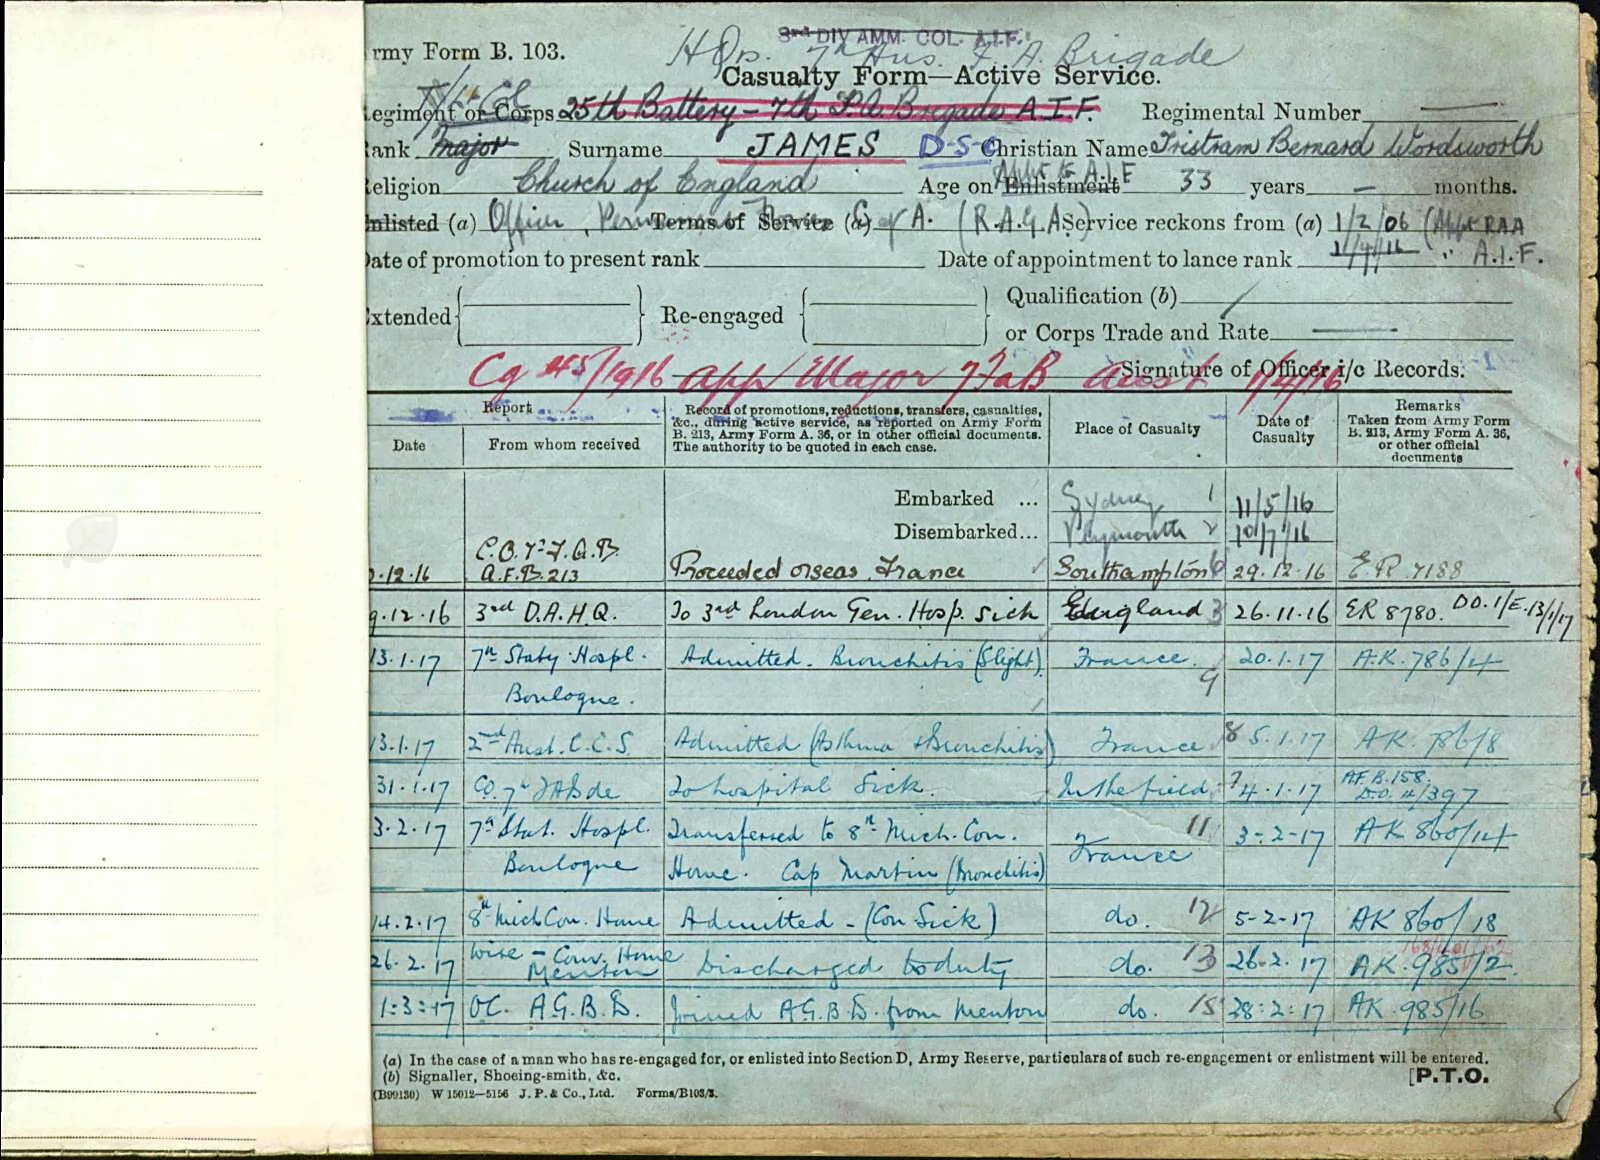 3rd DIV AMM. COL. A.I.F.
HQrs. 7th Aus. F. A. Brigade
rmy Form B. 103.
Casualty Form—Active Service.
T/Lt Col
egiment or Corps 25th Battery – 7th F.A. Brigade A.I.F. Regimental Number
Rank Major Surname JAMES D-S-O Christian Name Tristram Bernard Wordsworth
Religion Church of England Age on Enlistment Appt to A.I.F 33 years — months.
Enlisted (a) Officer, Permanent Forces C of A. (R.A.G.A.) Terms of Service (a) Service reckons from (a) 1/2/06 (Appt RAA
Date of promotion to present rank Date of appointment to lance rank 1/4/16 " A.I.F.
Extended Re-engaged Qualification (b)
or Corps Trade and Rate
Cg 45/1916 app Major 7 FAB Aust 1/4/16
Signature of Officer i/c Records.
Report
Date From whom received
Record of promotions, reductions, transfers, casualties, &c., during active service, as reported on Army Form B. 213, Army Form A. 36, or in other official documents. The authority to be quoted in each case.
Place of Casualty
Date of Casualty
Remarks
Taken from Army Form B. 213, Army Form A. 36, or other official documents
Embarked ... Sydney 1 11/5/16
Disembarked... Plymouth 2 10/7/16
C.O. 7th F.A.B.
12.16 A.F.B. 213 Proceeded o'seas France Southampton 6 29.12.16 E.R. 7188
9.12.16 3rd D.A.H.Q. To 3rd London Gen. Hosp. sick England 3 26.11.16 ER 8780. DO. 1/E. 13/1/17
13.1.17 7th Staty. Hospl. Boulogne. Admitted. Bronchitis (Slight) France. 9 20.1.17 A.K. 786/4
13.1.17 2nd Aust. C.C.S. Admitted (Asthma & Bronchitis) France 8 5.1.17 AK. 786/8
31.1.17 CO. 7th FABde To hospital Sick. In the field 7 4.1.17 AF. B. 158. D.O. 4/397
3.2.17 7th Stat. Hospl. Boulogne Transferred to 8th Mich. Con. Home. Cap Martin (Bronchitis) France 11 3-2-17 AK 860/14
14.2.17 8th Mich Con. Home Admitted - (Con. Sick) do. 12 5-2-17 AK 860/18
26.2.17 Wire - Conv. Home Menton Discharged to duty do. 13 26-2.17 AK. 985/2.
1:3:17 OC. A.G.B.D. Joined A.G.B.D. from Menton do. 15 28:2:17 AK 985/16
(a) In the case of a man who has re-engaged for, or enlisted into Section D, Army Reserve, particulars of such re-engagement or enlistment will be entered.
(b) Signaller, Shoeing-smith, &c.
[P.T.O.
(B99130) W 15012—5156 J. P. & Co., Ltd. Forms/B103/3.